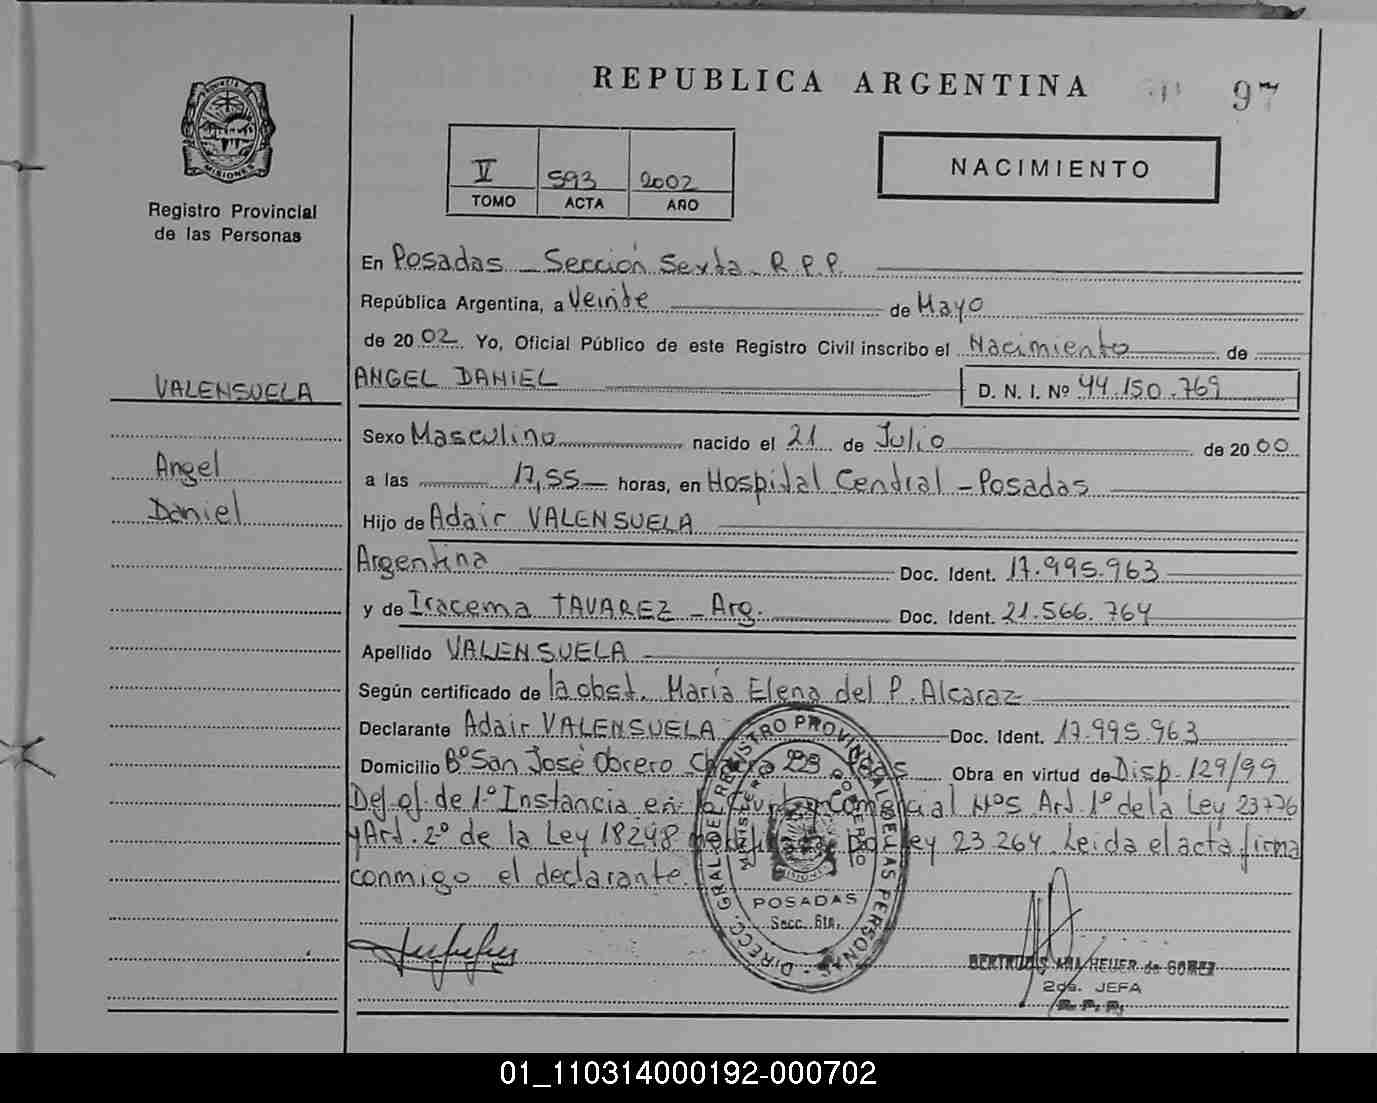 REPUBLICA ARGENTINA
97
PROVINCIA DE MISIONES
Registro Provincial
de las Personas
V 593 2002
TOMO ACTA AÑO
NACIMIENTO
En Posadas - Sección Sexta - R.P.P.
República Argentina, a Veinte de Mayo
de 2002 Yo, Oficial Público de este Registro Civil inscribo el Nacimiento de
VALENSUELA
Angel
Daniel
ANGEL DANIEL D. N. I. Nº 44.150.769
Sexo Masculino nacido el 21 de Julio de 2000
a las 17,55 horas, en Hospital Central - Posadas
Hijo de Adair VALENSUELA
Argentina Doc. Ident. 17.995.963
y de Iracema TAVAREZ - Arg. Doc. Ident. 21.566.764
Apellido VALENSUELA
Según certificado de la obst. María Elena del P. Alcaraz
Declarante Adair VALENSUELA Doc. Ident. 17.995.963
Domicilio Bº San José Obrero Chacra 223 Obra en virtud de Disp. 129/99
Def. of. de 1º Instancia en lo Comercial Nº5 Art. 1º de la Ley 23776
y Art. 2º de la Ley 18248 Ley 23.264. Leida el acta firma
conmigo el declarante.
DIRECC. GRAL. DEL REGISTRO PROVINCIAL DE LAS PERSONAS
MINISTERIO DE GOBIERNO
MISIONES
POSADAS
Secc. 6ta.
GERTRUDIS ANA HEUER de GOMEZ
2da. JEFA
R. P. P.
01_110314000192-000702